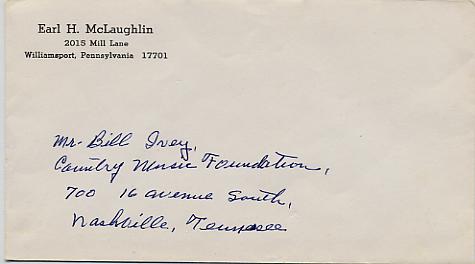 Earl H. McLaughlin
2015 Mill Lane
Williamsport, Pennsylvania 17701
Mr. Bill Ivey,
Country Music Foundation,
700 16 avenue South,
Nashville, Tennesee